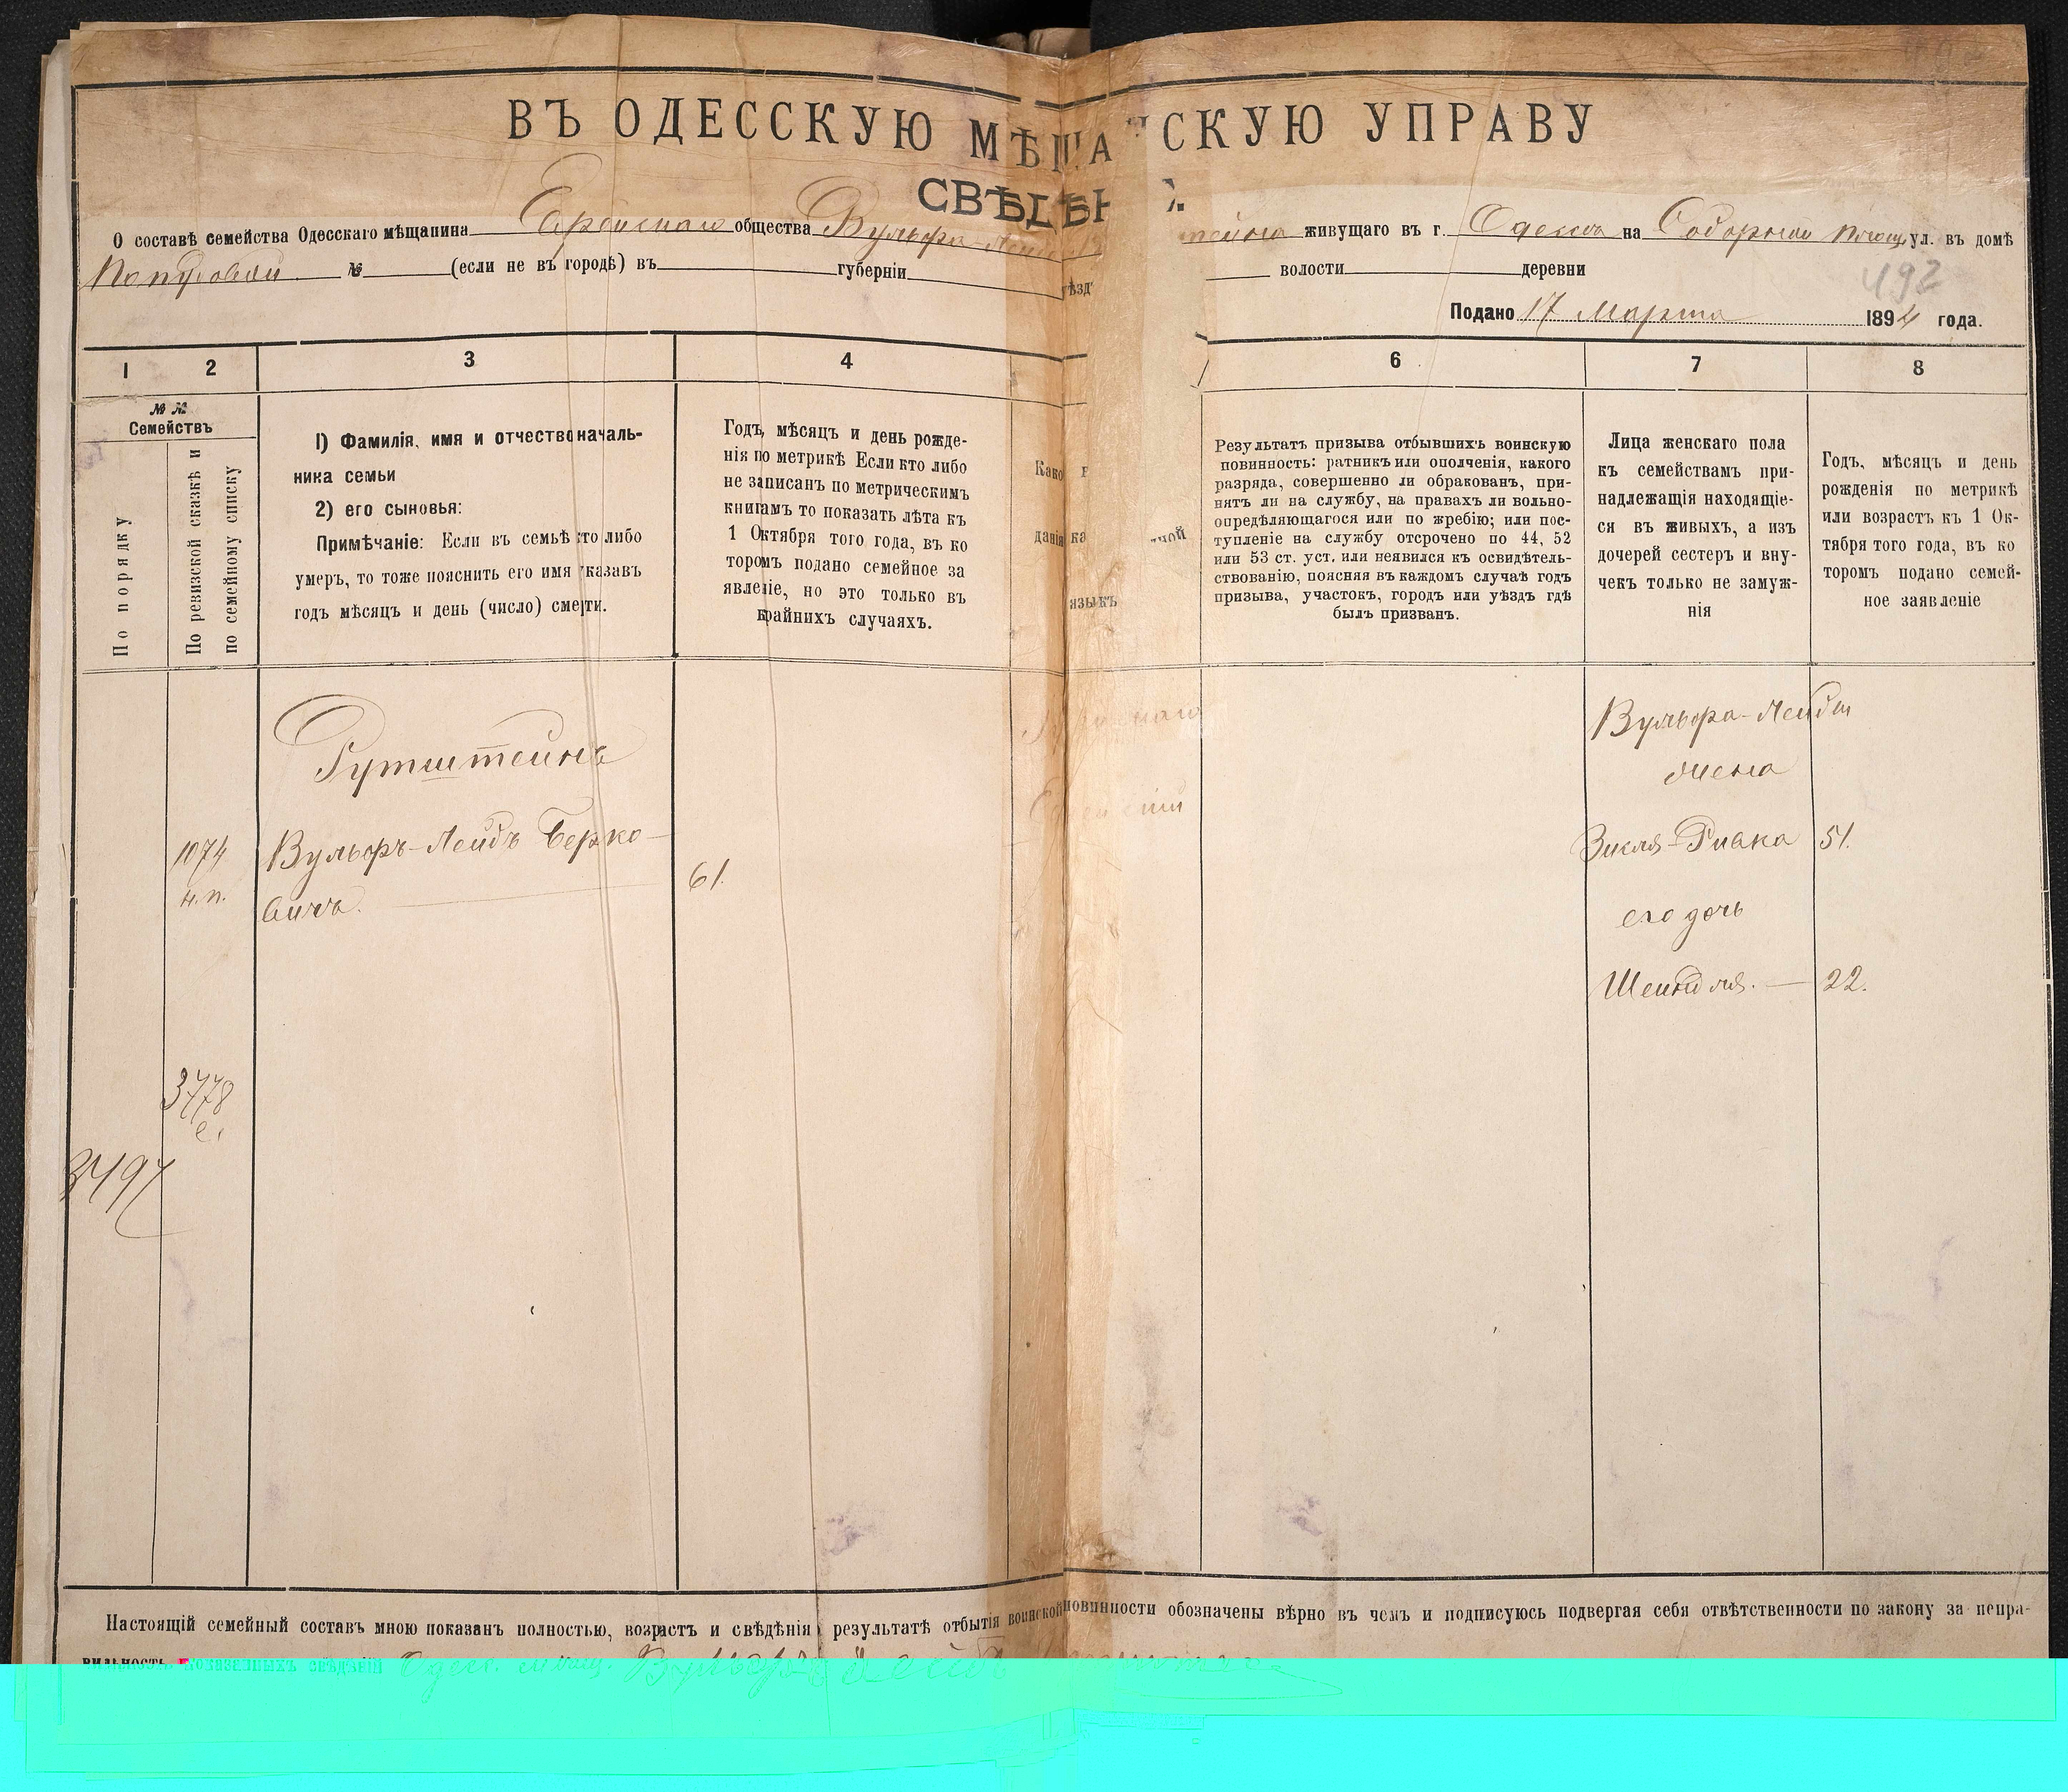 ВЪ ОДЕССКУЮ МѢЩАНСКУЮ УПРАВУ
СВѢДѢН
О составѣ семейства Одесскаго мѣщанина Еврейскаго общества Вульфа-Лейб тейна живущаго въ г. Одесса на Соборной площ. ул. въ домѣ
№ (если не въ городѣ) въ губерніи ѣзд волости деревни
492
Подано 17 Марта 1894 года.
1 2 3 4 6 7 8
№ №
Семействъ
По порядку
По ревизской сказкѣ и
по семейному списку
1) Фамилія, имя и отчество началь-
ника семьи
2) его сыновья:
Примѣчаніе: Если въ семьѣ кто либо
умеръ, то тоже пояснить его имя указавъ
годъ мѣсяцъ и день (число) смерти.
Годъ, мѣсяцъ и день рожде-
нія по метрикѣ Если кто либо
не записанъ по метрическимъ
книгамъ то показать лѣта къ
1 Октября того года, въ ко
торомъ подано семейное за
явленіе, но это только въ
крайнихъ случаяхъ.
Како
данія ка ной
языкъ
Результатъ призыва отбывшихъ воинскую
повинность: ратникъ или ополченія, какого
разряда, совершенно ли обракованъ, при-
нятъ ли на службу, на правахъ ли вольно-
опредѣляющагося или по жребію; или пос-
тупленіе на службу отсрочено по 44, 52
или 53 ст. уст. или неявился къ освидѣтель-
ствованію, поясняя въ каждомъ случаѣ годъ
призыва, участокъ, городъ или уѣздъ гдѣ
былъ призванъ.
Лица женскаго пола
къ семействамъ при-
надлежащія находящіе-
ся въ живыхъ, а изъ
дочерей сестеръ и вну-
чекъ только не замуж-
нія
Годъ, мѣсяцъ и день
рожденія по метрикѣ
или возрастъ къ 1 Ок-
тября того года, въ ко
торомъ подано семей-
ное заявленіе
Гутштейнъ
1074
н.п.
Вульфъ-Лейбъ Берко-
вичъ.
61.
Еврейскаго
Еврейскій
Вульфа-Лейбы
жена
Зисля-Ривка 51.
его дочь
Шейндля. — 22.
3778
е.
3497
Настоящій семейный составъ мною показанъ полностью, возрастъ и свѣдѣнія результатѣ отбытія воинской повинности обозначены вѣрно въ чемъ и подписуюсь подвергая себя отвѣтственности по закону за непра-
вильность показанныхъ свѣдѣній Одесс. мѣщ. Вульфъ Лейбъ